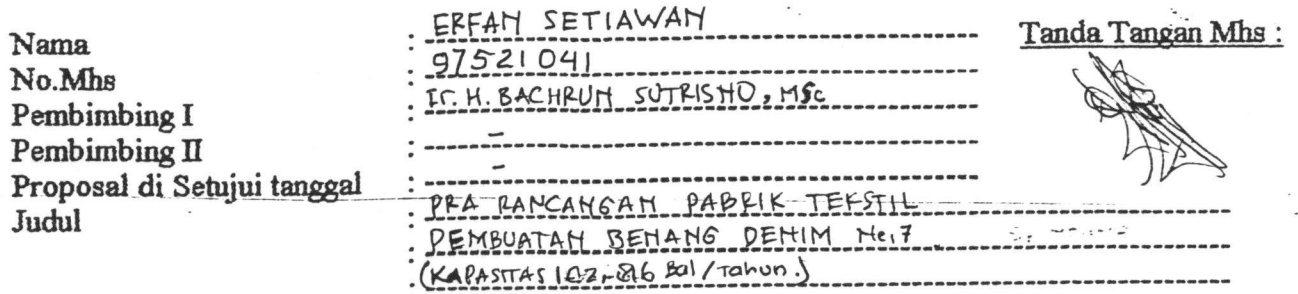 Nama : ERFAN SETIAWAN
Tanda Tangan Mhs :
No.Mhs : 97521041
Pembimbing I : Ir. H. BACHRUN SUTRISNO, MSc
Pembimbing II : -
Proposal di Setujui tanggal : -
Judul : PRA RANCANGAN PABRIK TEKSTIL
: PEMBUATAN BENANG DENIM Ne,7
: (KAPASITAS Bal / Tahun.)